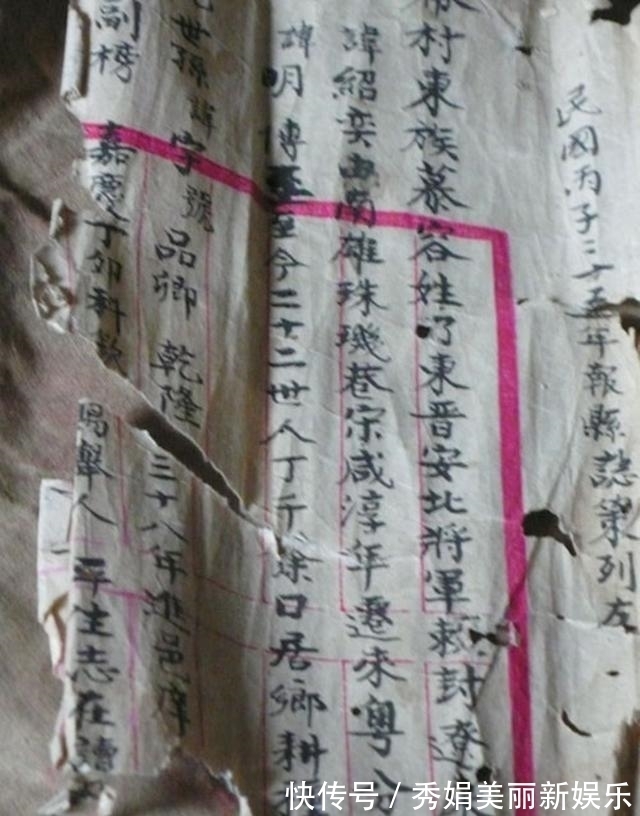 民國丙子三十五年報縣誌策列左
村東族慕容姓乃東晉安北將軍敕封遼
諱紹奕由南雄珠璣巷宋咸淳年遷來粵
諱明傳至至今二十二世人丁千餘口居鄉耕
世孫諱字號品卿乾隆三十八年進邑庠
副榜嘉慶丁卯科欽賜舉人平生志在讀
快传号 / 秀娟美丽新娱乐